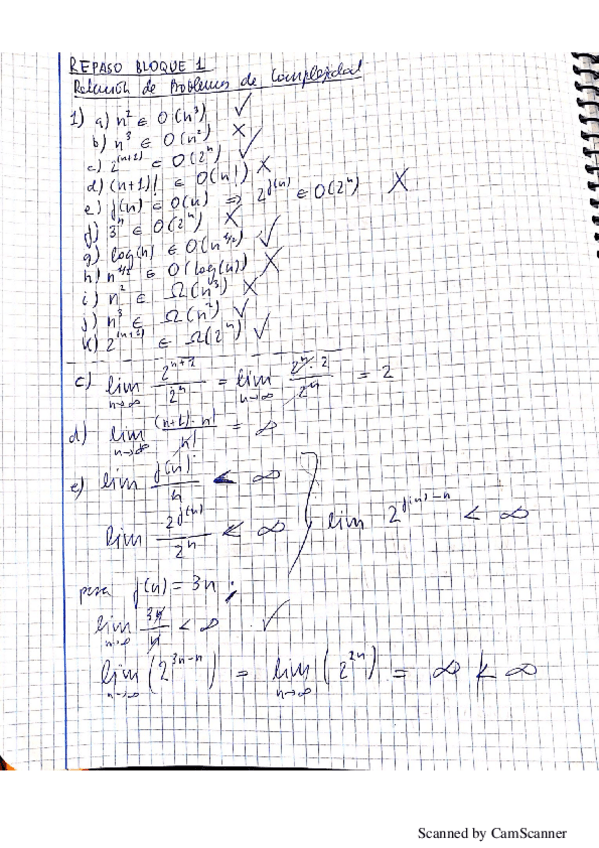 REPASO BLOQUE 1
Relación de Problemas de Complejidad
1) a) n² ∈ O(n³) ✓
b) n³ ∈ O(n²) X
c) 2^(n+1) ∈ O(2^n) ✓
d) (n+1)! ∈ O(n!) X
e) f(n) ∈ O(n) ⇒ 2^f(n) ∈ O(2^n) X
f) 3^n ∈ O(2^n) X
g) log(n) ∈ O(n^1/2) ✓
h) n^1/2 ∈ O(log(n)) X
i) n² ∈ Ω(n³) X
j) n³ ∈ Ω(n²) ✓
k) 2^(n+1) ∈ Ω(2^n) ✓
c) lim n→∞ 2^(n+1) / 2^n = lim n→∞ 2^n · 2 / 2^n = 2
d) lim n→∞ (n+1) · n! / n! = ∞
e) lim f(n) / n < ∞
lim 2^f(n) / 2^n < ∞ } lim 2^(f(n)-n) < ∞
para f(n) = 3n ;
lim n→∞ 3n / n < ∞ ✓
lim n→∞ (2^(3n-n)) = lim n→∞ (2^(2n)) = ∞ ≮ ∞
Scanned by CamScanner